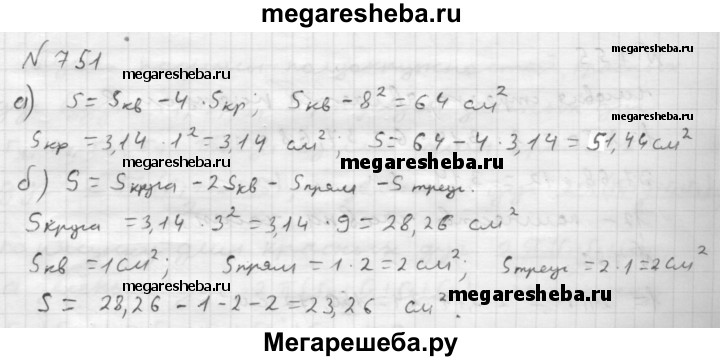 megaresheba.ru
N 751
megaresheba.ru
а) S = Sкв - 4 · Sкр; Sкв - 8² = 64 см²
Sкр = 3,14 · 1² = 3,14 см²; S = 64 - 4 · 3,14 = 51,44 см²
megaresheba.ru
megaresheba.ru
б) S = Sкруга - 2Sкв - Sпрям - Sтреуг.
Sкруга = 3,14 · 3² = 3,14 · 9 = 28,26 см²
megaresheba.ru
Sкв = 1 см²; Sпрям = 1 · 2 = 2 см²; Sтреуг = 2 · 1 = 2 см²
S = 28,26 - 1 - 2 - 2 = 23,26 см².
megaresheba.ru
Мегарешеба.ру